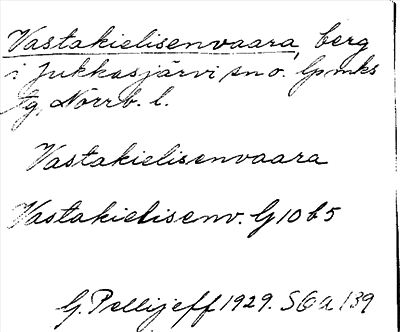 Vastakielisenvaara, berg
i Jukkasjärvi sn o. Lpmks
tg, Norrb. l.
Vastakielisenvaara
Vastakielisenv. G10b5
G. Pellijeff 1929. SOA 139